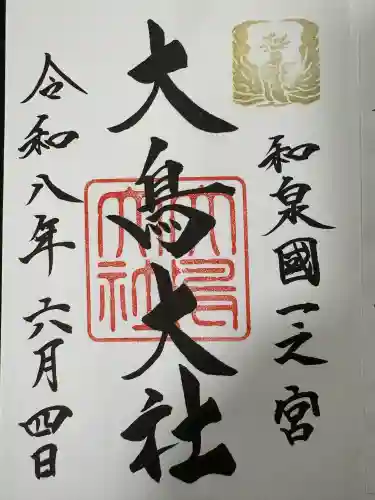 和泉國一之宮
大鳥大社
大鳥大社
令和八年六月四日